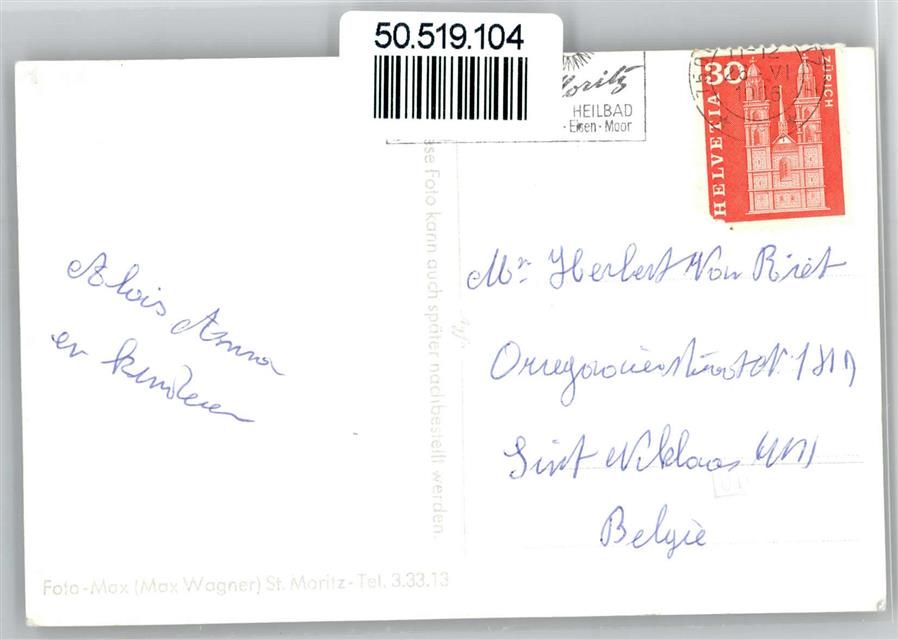 50.519.104
Moritz
HEILBAD
- Eisen - Moor
30
HELVETIA
ZÜRICH
ese Foto kann auch später nachbestellt werden.
Alois Anna
en kinderen
Mr. Herbert Van Riet
Sint Niklaas
België
Foto-Max (Max Wagner) St. Moritz - Tel. 3.33.13